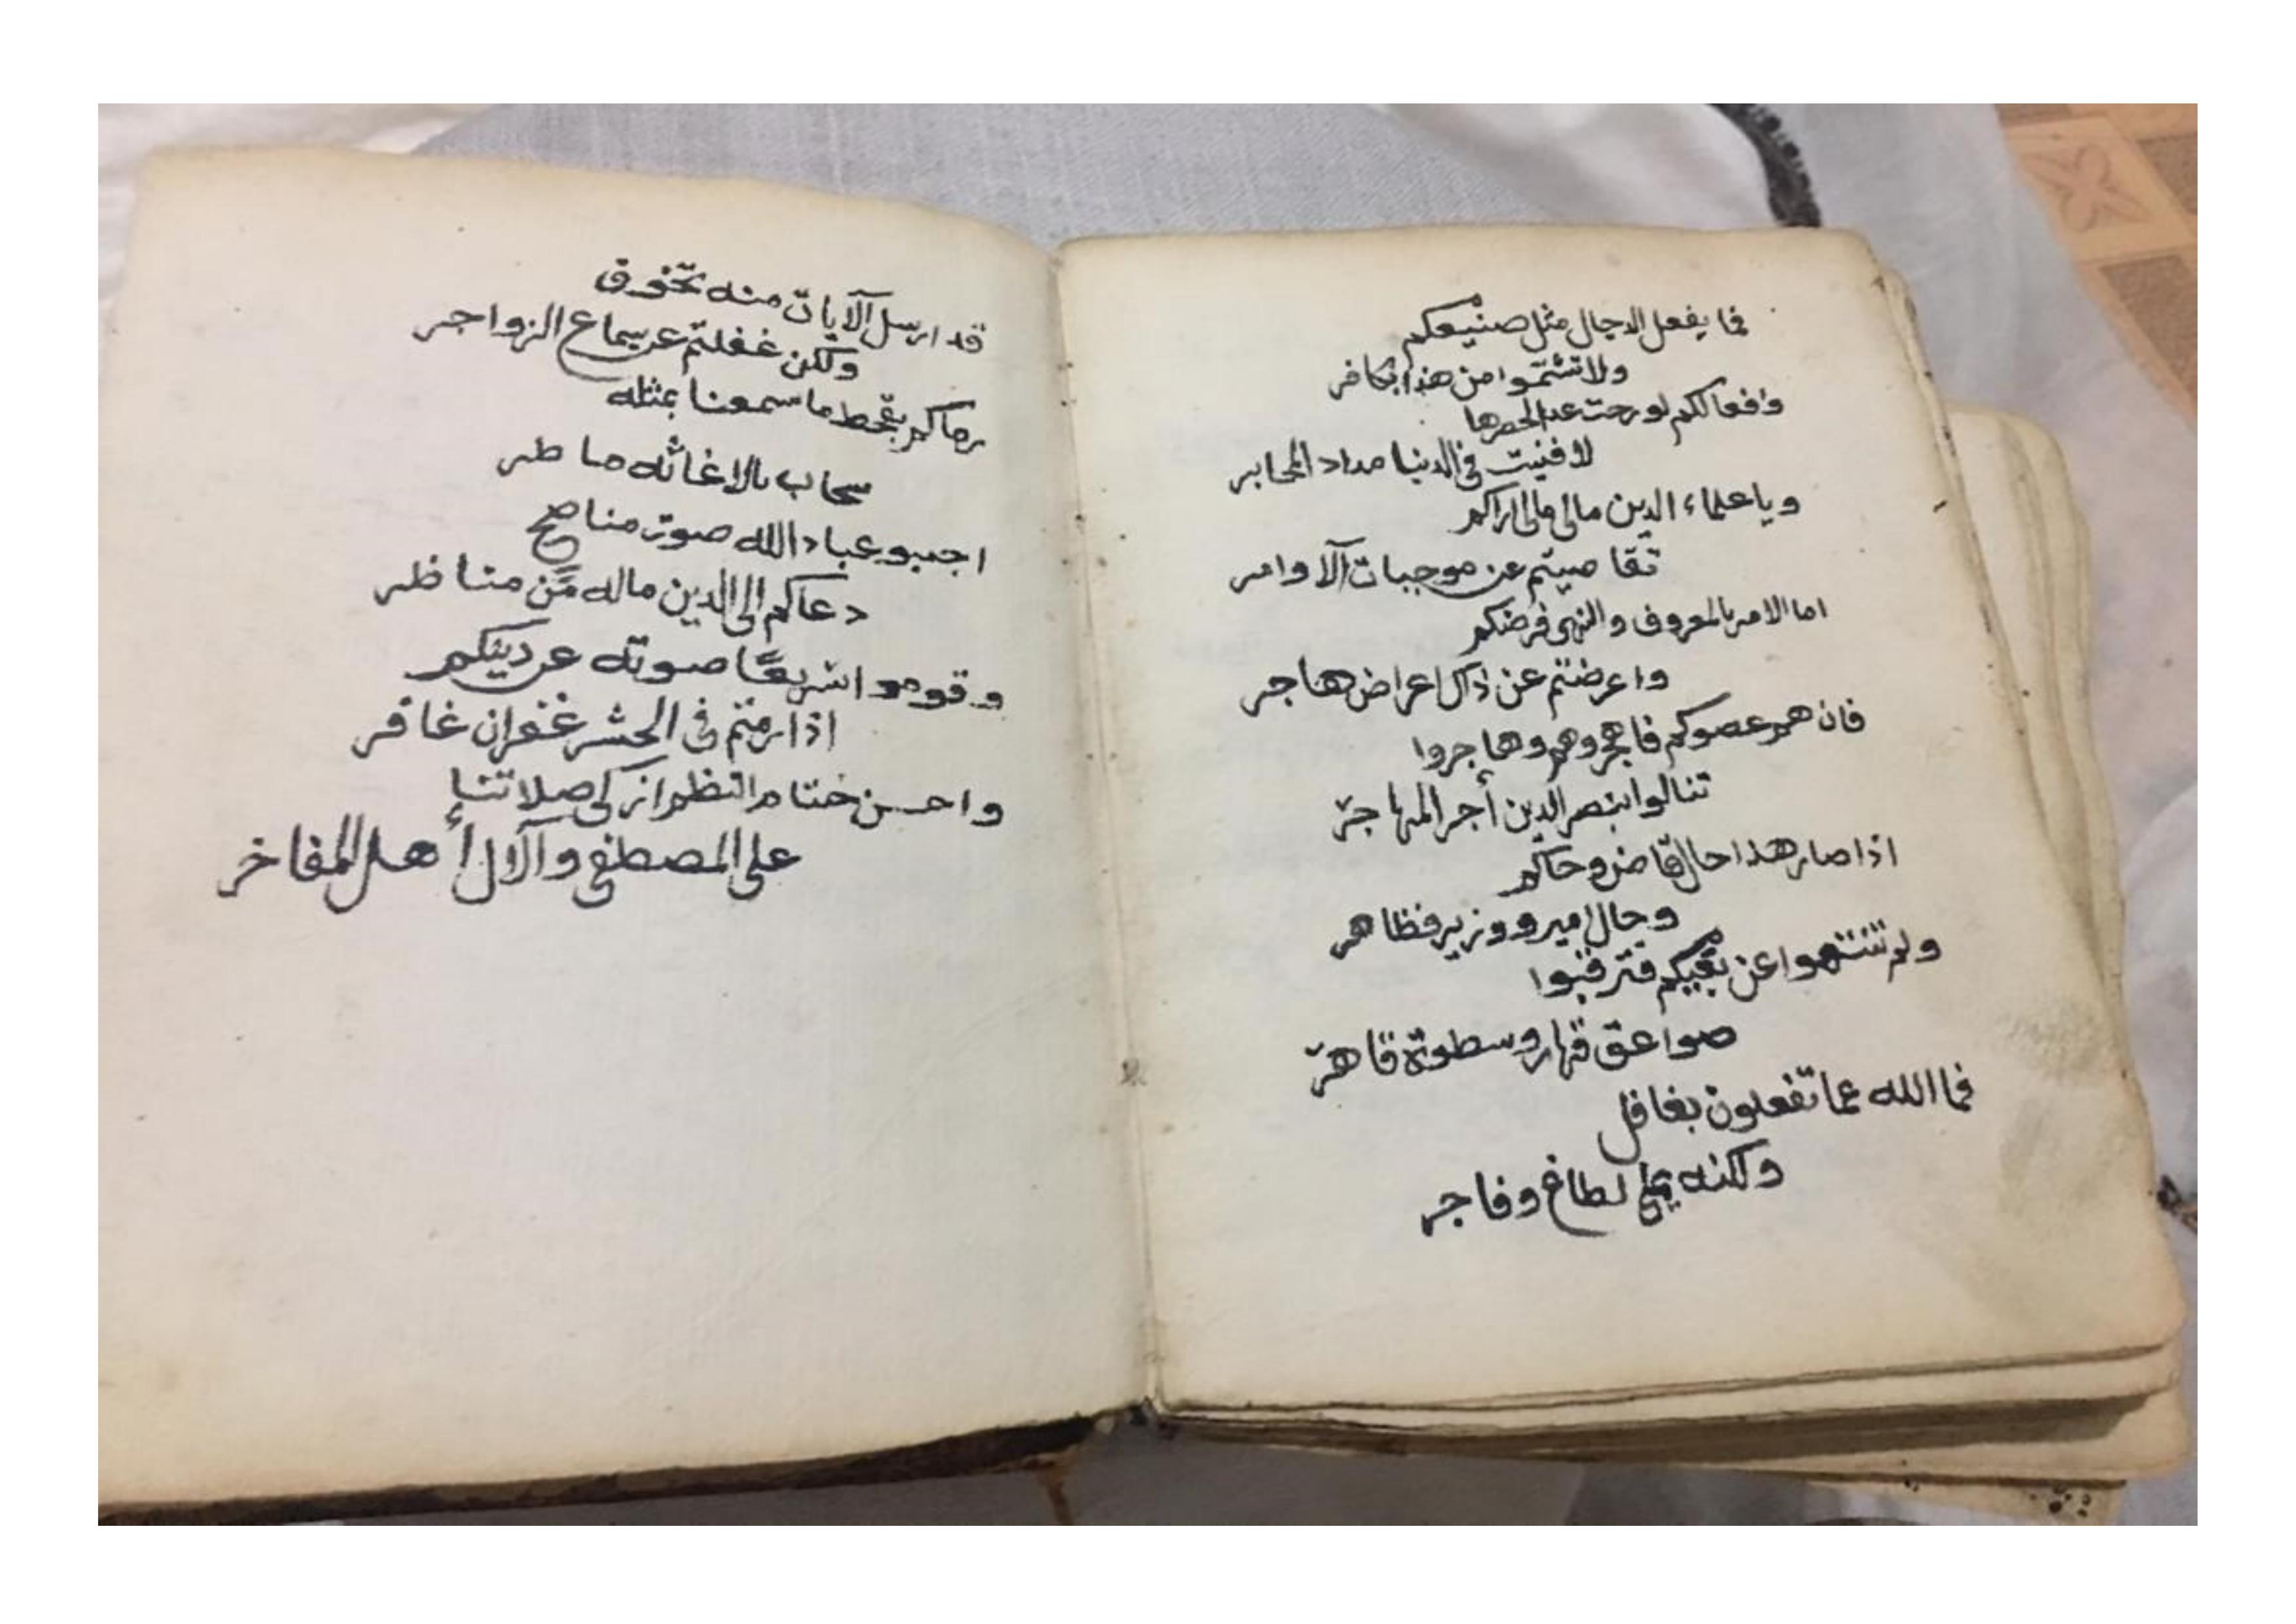 فما يفعل الدجال مثل صنيعكم
ولا تشتموا من هذا بكافر
وافعالكم لو رحت عدا لحصرها
لافنيت في الدنيا مداد المحابر
ويا علماء الدين مالي مالي اراكم
تقاصيتم عن موجبات الأوامر
اما الامر بالمعروف والنهي فرضكم
واعرضتم عن ذاك اعراض هاجر
فان هم عصوكم فاهجروهم وهاجروا
تنالوا بنصر الدين أجر المهاجر
اذا صار هذا حال قاض وحاكم
وحال امير ووزير فظاهر
ولم تنتهوا عن بغيكم فترقبوا
صواعق قهار وسطوة قاهر
فما الله عما تفعلون بغافل
ولكنه يملي لطاغ وفاجر
قد ارسل الآيات منه تخوف
ولكن غفلتم عن سماع الزواجر
رماكم بقحط ما سمعنا بمثله
سحاب بالاغاثه ماطر
اجيبو عباد الله صوت مناصح
دعاكم الى الدين ماله من مناظر
وقوموا سريعًا صوته عن دينكم
اذا رمتم في الحشر غفران غافر
واحسن ختام النظم ازكى صلاتنا
على المصطفى والآل أهل المفاخر